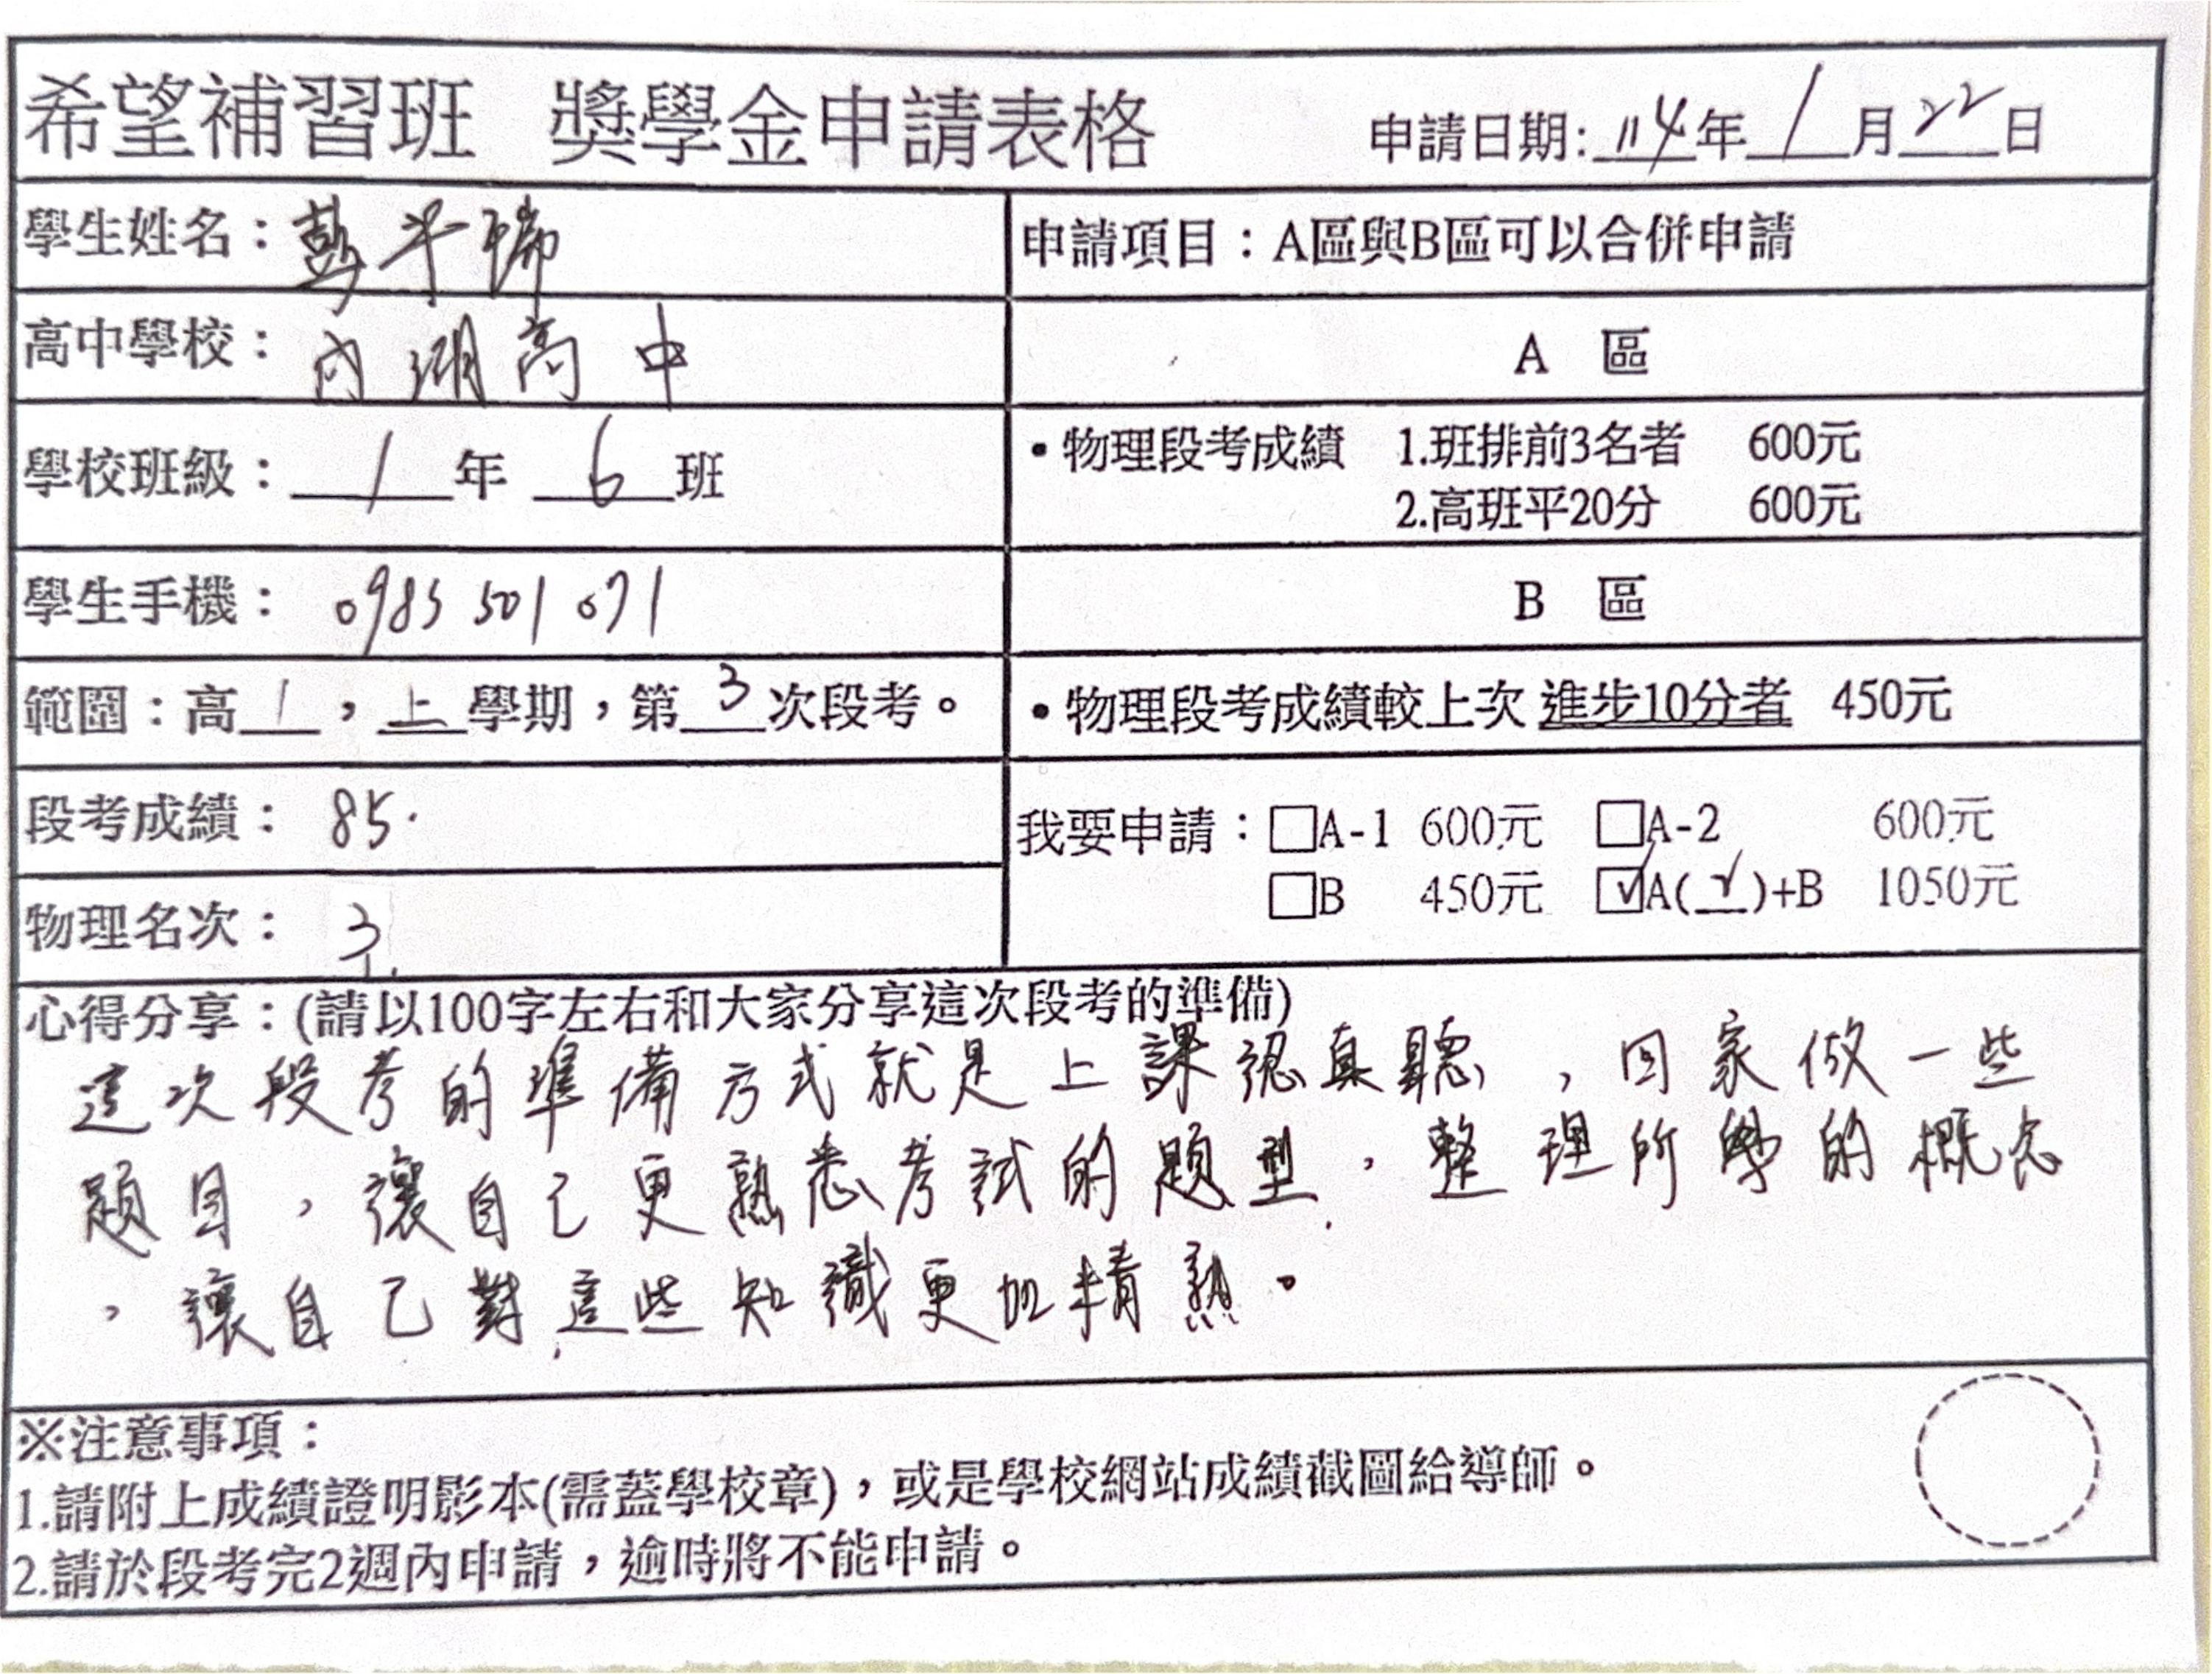 希望補習班 獎學金申請表格 申請日期:114年1月22日
學生姓名：彭
申請項目：A區與B區可以合併申請
高中學校：內湖高中
A 區
學校班級：1年6班
•物理段考成績 1.班排前3名者 600元
2.高班平20分 600元
學生手機：0985 501 071
B 區
範圍：高1，上學期，第3次段考。
•物理段考成績較上次 進步10分者 450元
段考成績：85.
我要申請：□A-1 600元 □A-2 600元
□B 450元 ☑A(✓)+B 1050元
物理名次：3.
心得分享：(請以100字左右和大家分享這次段考的準備)
這次段考的準備方式就是上課認真聽，回家做一些
題目，讓自己更熟悉考試的題型，整理所學的概念
，讓自己對這些知識更加精熟。
※注意事項：
1.請附上成績證明影本(需蓋學校章)，或是學校網站成績截圖給導師。
2.請於段考完2週內申請，逾時將不能申請。